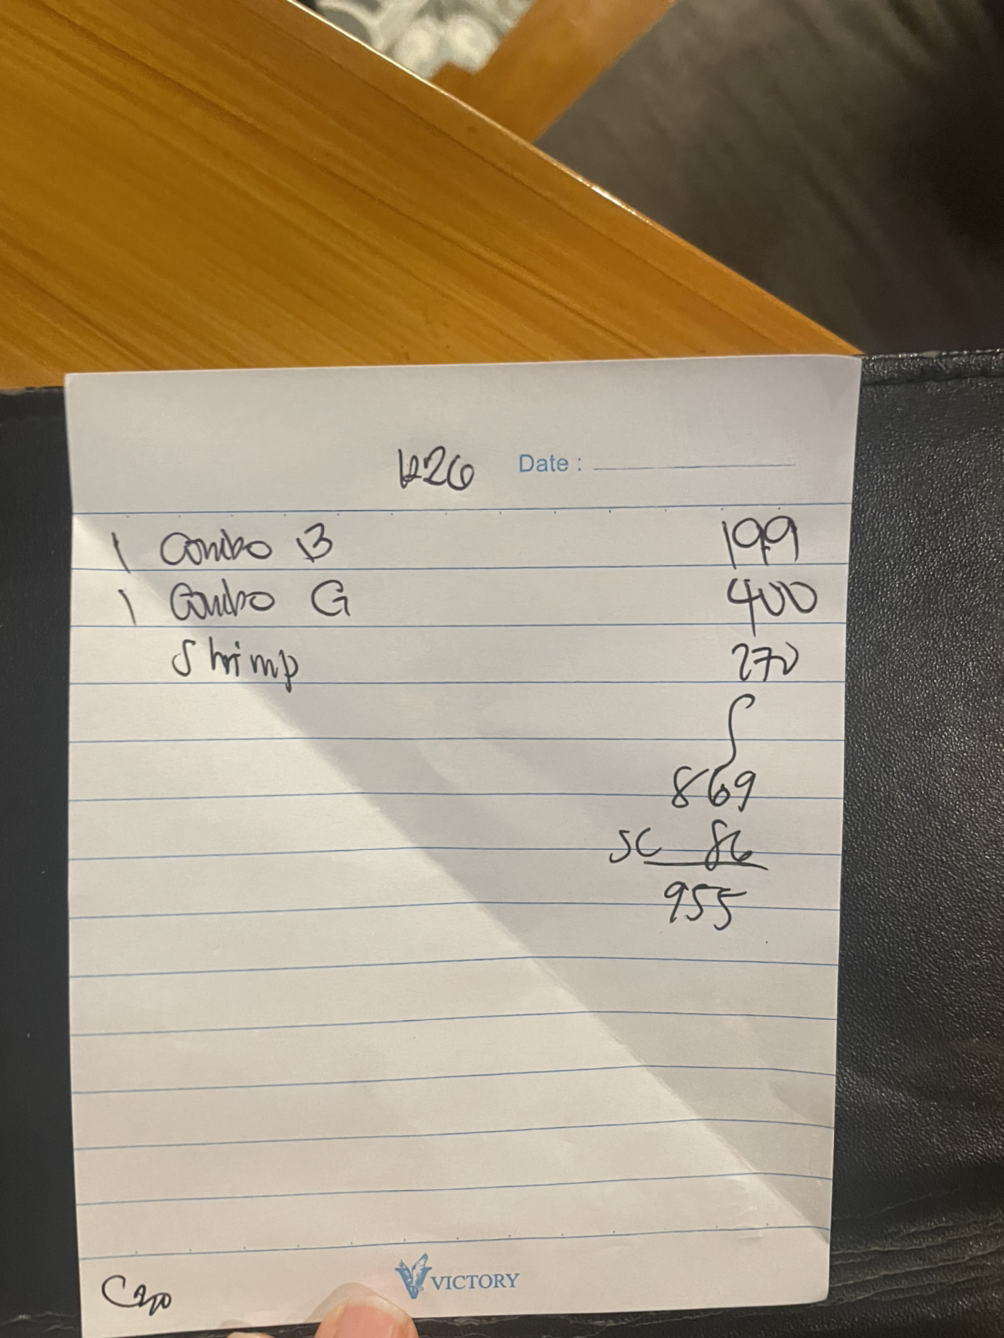 Date :
1 Combo B 199
1 Combo G 400
Shrimp 270
869
SC 86
955
VICTORY